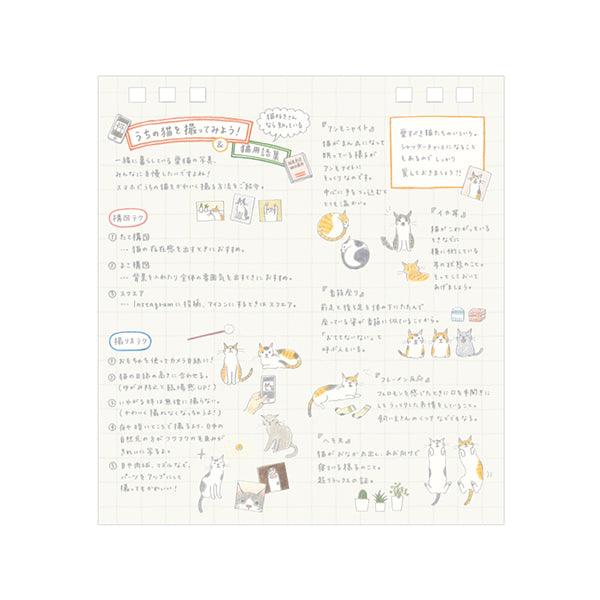 うちの猫を撮ってみよう!
&
猫用語集
猫好きさん
なら知っている
一緒に暮らしている愛猫の写真、
みんなに自慢したいですよね!
スマホでうちの猫をかわいく撮る方法をご紹介。
構図テク
① たて構図
… 猫の存在感を出すときにおすすめ。
② よこ構図
… 背景を入れたり全体の雰囲気を出すときにおすすめ。
③ スクエア
… Instagramに投稿、アイコンにするときはスクエア。
撮り方テク
① おもちゃを使ってカメラ目線に!
② 猫の目線の高さに合わせる。
(ゆがみ防止と臨場感UP!)
③ いやがる時は無理に撮らない。
(かわいく撮れなくなっちゃうよ!)
④ 夜や暗いところで撮るより、日中の
自然光の方がフワフワの毛並みが
きれいに写るよ。
⑤ 目や肉球、マズルなど、
パーツをアップにして
撮ってもかわいい!
『アンモニャイト』
猫がまん丸になって
眠っている様子が
アンモナイトに
そっくりなのです。
中心に手をつっ込むと
とても温かい。
愛すべき猫たちのいろいろ。
シャッターチャンスになること
もあるので しっかり
覚えておきましょう!!
『イカ耳』
猫がこわがっている
ときなどに
横に伏している
耳の状態のこと。
そっとしておいて
あげましょう。
『香箱座り』
前足と後ろ足を体の下にたたんで
座っている姿が香箱に似ていることから。
「おててないない」と
呼ぶ人もいる。
『フレーメン反応』
フェロモンを感じたときに口を半開きに
してうっとりした表情をしていること。
飼い主さんのくつ下などでもなる。
『ヘソ天』
猫がおなか丸出し、あお向けで
寝ている様子のこと。
超リラックスの証。